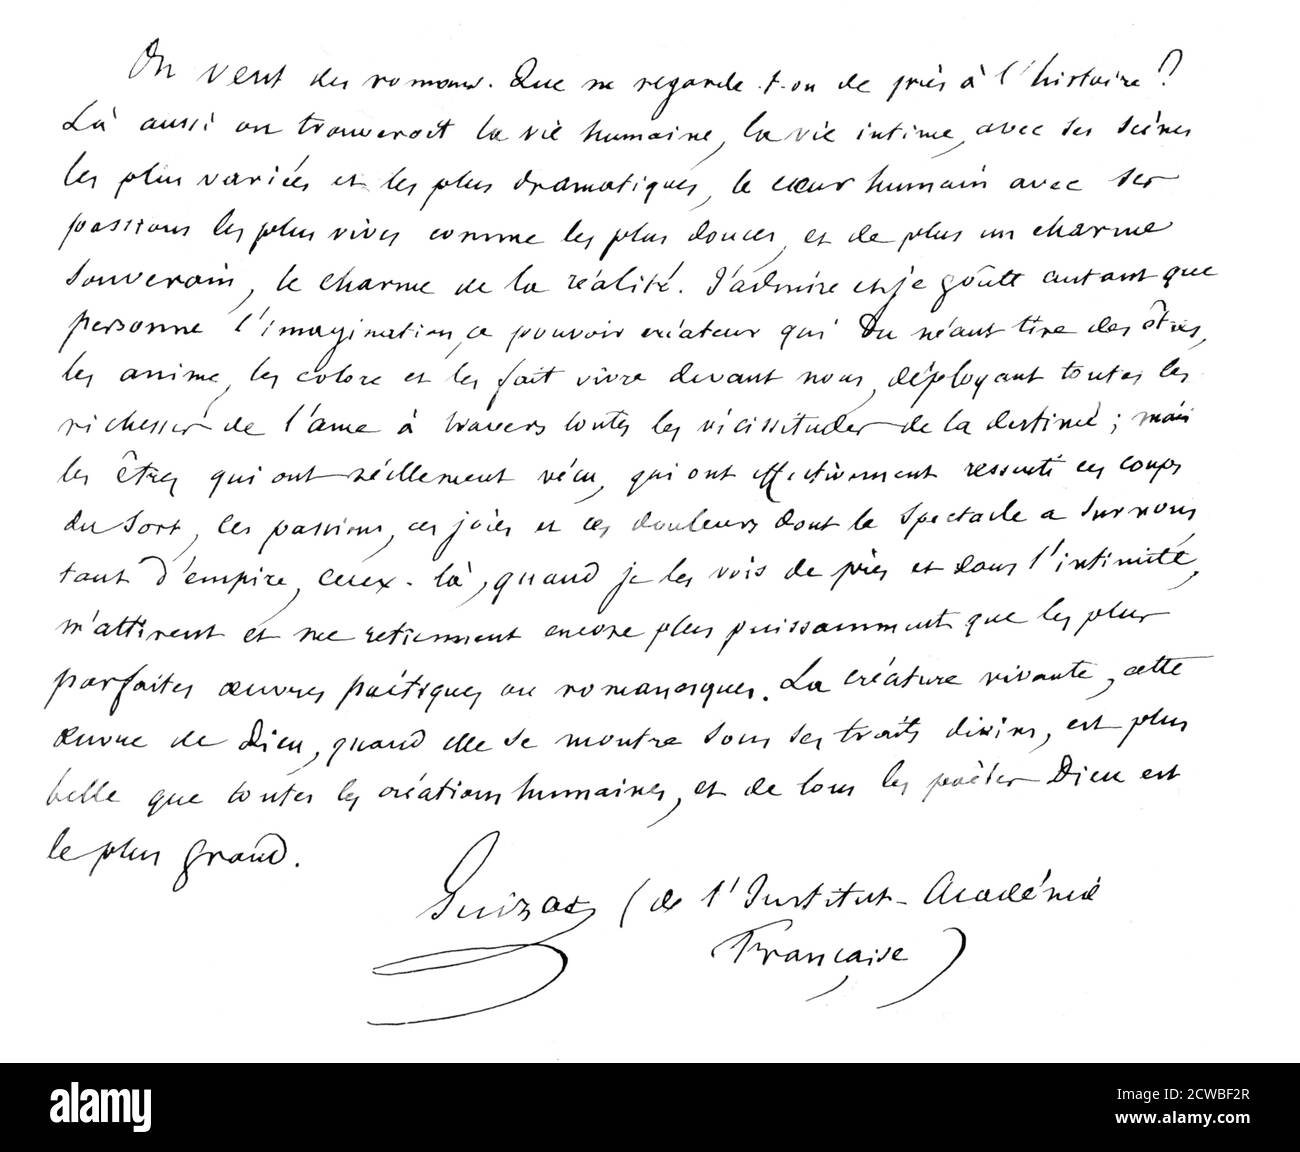 On veut des romans. Que ne regarde-t-on de près à l'histoire?
Là aussi on trouverait la vie humaine, la vie intime, avec ses scènes
les plus variées et les plus dramatiques, le cœur humain avec ses
passions les plus vives comme les plus douces, et de plus un charme
souverain, le charme de la réalité. J'admire et je goûte autant que
personne l'imagination, ce pouvoir créateur qui du néant tire des êtres,
les anime, les colore et les fait vivre devant nous, déployant toutes les
richesses de l'âme à travers toutes les vicissitudes de la destinée; mais
les êtres qui ont réellement vécu, qui ont effectivement ressenti ces coups
du sort, ces passions, ces joies et ces douleurs dont le spectacle a sur nous
tant d'empire, ceux-là, quand je les vois de près et dans l'intimité,
m'attirent et me retiennent encore plus puissamment que les plus
parfaites œuvres poétiques ou romanesques. La créature vivante, cette
œuvre de Dieu, quand elle se montre sous ses traits divins, est plus
belle que toutes les créations humaines, et de tous les poètes Dieu est
le plus grand.
Guizot (de l'Institut-Académie
Française)
alamy
Image ID: 2CWBF2R
www.alamy.com